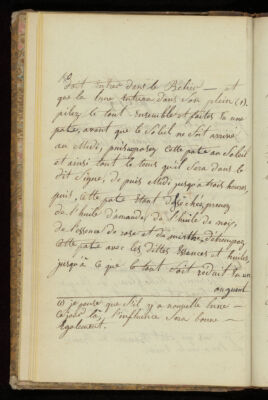 Soit entrer dans le Bélier — et
que la lune entrera dans son plein (1).
pilez le tout ensemble et faites la une
pate, avant que le Soleil ne soit arrivé
au Midi, puis exposez cette pate au Soleil
et ainsi tout le tems qu'il sera dans le
dit Signe, depuis Midi jusqu'à trois heures,
puis, cette pate étant désséchée, prenez
de l'huile d'amandes, de l'huile de noix,
de l'essence de rose et du mirthe, détrempez
cette pate avec les dittes Essences et huiles,
jusqu'à ce que le tout soit réduit en un
onguent.
(1) je pense que s'il y a nouvelle lune —
ce jour là, l'influence sera bonne —
également.